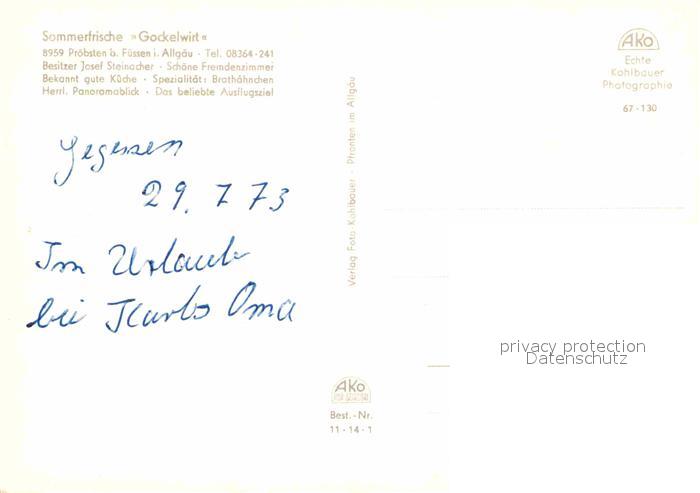 Sommerfrische »Gockelwirt«
8959 Pröbsten b. Füssen i. Allgäu · Tel. 08364-241
Besitzer Josef Steinacher · Schöne Fremdenzimmer
Bekannt gute Küche · Spezialität: Brathähnchen
Herrl. Panoramablick · Das beliebte Ausflugsziel
gegessen
29. 7 73
Im Urlaub
bei Karlos Oma
Verlag Foto-Kohlbauer · Pfronten im Allgäu
AKO
Best.-Nr.
11-14-1
AKO
Echte
Kohlbauer
Photographie
67-130
privacy protection
Datenschutz